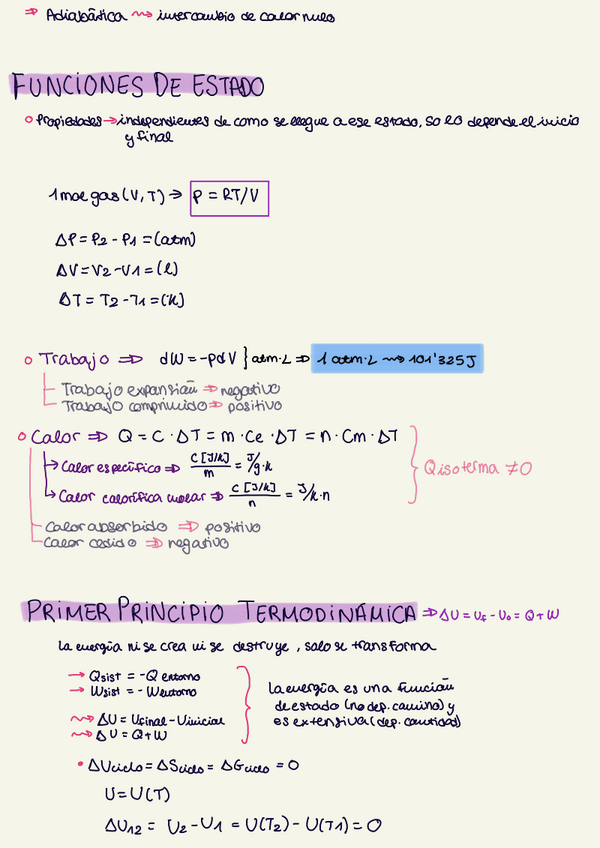 ⇒ Adiabática ⇝ intercambio de calor nulo
FUNCIONES DE ESTADO
○ Propiedades → independientes de como se llegue a ese estado, solo depende el inicio
y final
1 mol gas (V, T) → P = RT/V
ΔP = P2 - P1 = (atm)
ΔV = V2 - V1 = (l)
ΔT = T2 - T1 = (K)
○ Trabajo ⇒ dW = -pdV } atm·L ⇒ 1 atm·L ⇝ 101'325 J
Trabajo expansión ⇒ negativo
Trabajo comprimido ⇒ positivo
○ Calor ⇒ Q = C · ΔT = m · Ce · ΔT = n · Cm · ΔT
→ Calor específico ⇒ C [J/K] / m = J/g·k
→ Calor calorífica molar ⇒ C [J/K] / n = J/k·n
} Q isoterma ≠ 0
Calor absorbido ⇒ positivo
Calor cedido ⇒ negativo
PRIMER PRINCIPIO TERMODINÁMICA ⇒ ΔU = Uf - U0 = Q + W
La energía ni se crea ni se destruye, solo se transforma
→ Qsist = -Q entorno
→ Wsist = -Wentorno
⇝ ΔU = Ufinal - Uinicial
⇝ ΔU = Q + W
} La energía es una función
de estado (no dep. camino) y
es extensiva (dep. cantidad)
• ΔUciclo = ΔSciclo = ΔGciclo = 0
U = U(T)
ΔU12 = U2 - U1 = U(T2) - U(T1) = 0